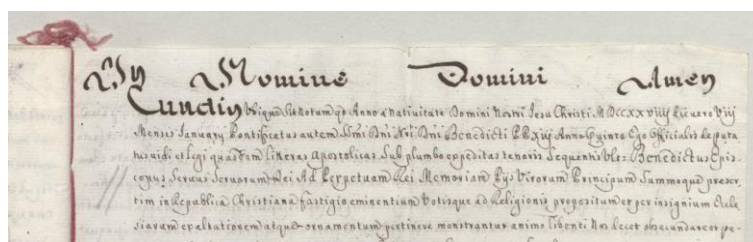 In Nomine Domini Amen
Cunctis Ubique sit notum qd Anno a nativitate Domini Nostri Jesu Christi MDCCXXVIIIJ Die vero VIIJ
Mensis January Pontificatus autem Smi Dni Nri Dni Benedicti PP XIIJ Anno Quinto Ego Officialis deputa
tus vidi et legi quasdam literas Apostolicas sub plumbo expeditas tenoris sequentis Vlz: Benedictus Epis
copus Servus Servorum Dei Ad Perpetuam Rei Memoriam Pijs Virorum Principum Summoque preser
tim in Republica Christiana fastigio eminentium Votisque ad Religionis propositum et per insignium Eccle
siarum exaltationem atque ornamentum pertinere monstrantur animo libenti Nos decet obsecundare et pe-